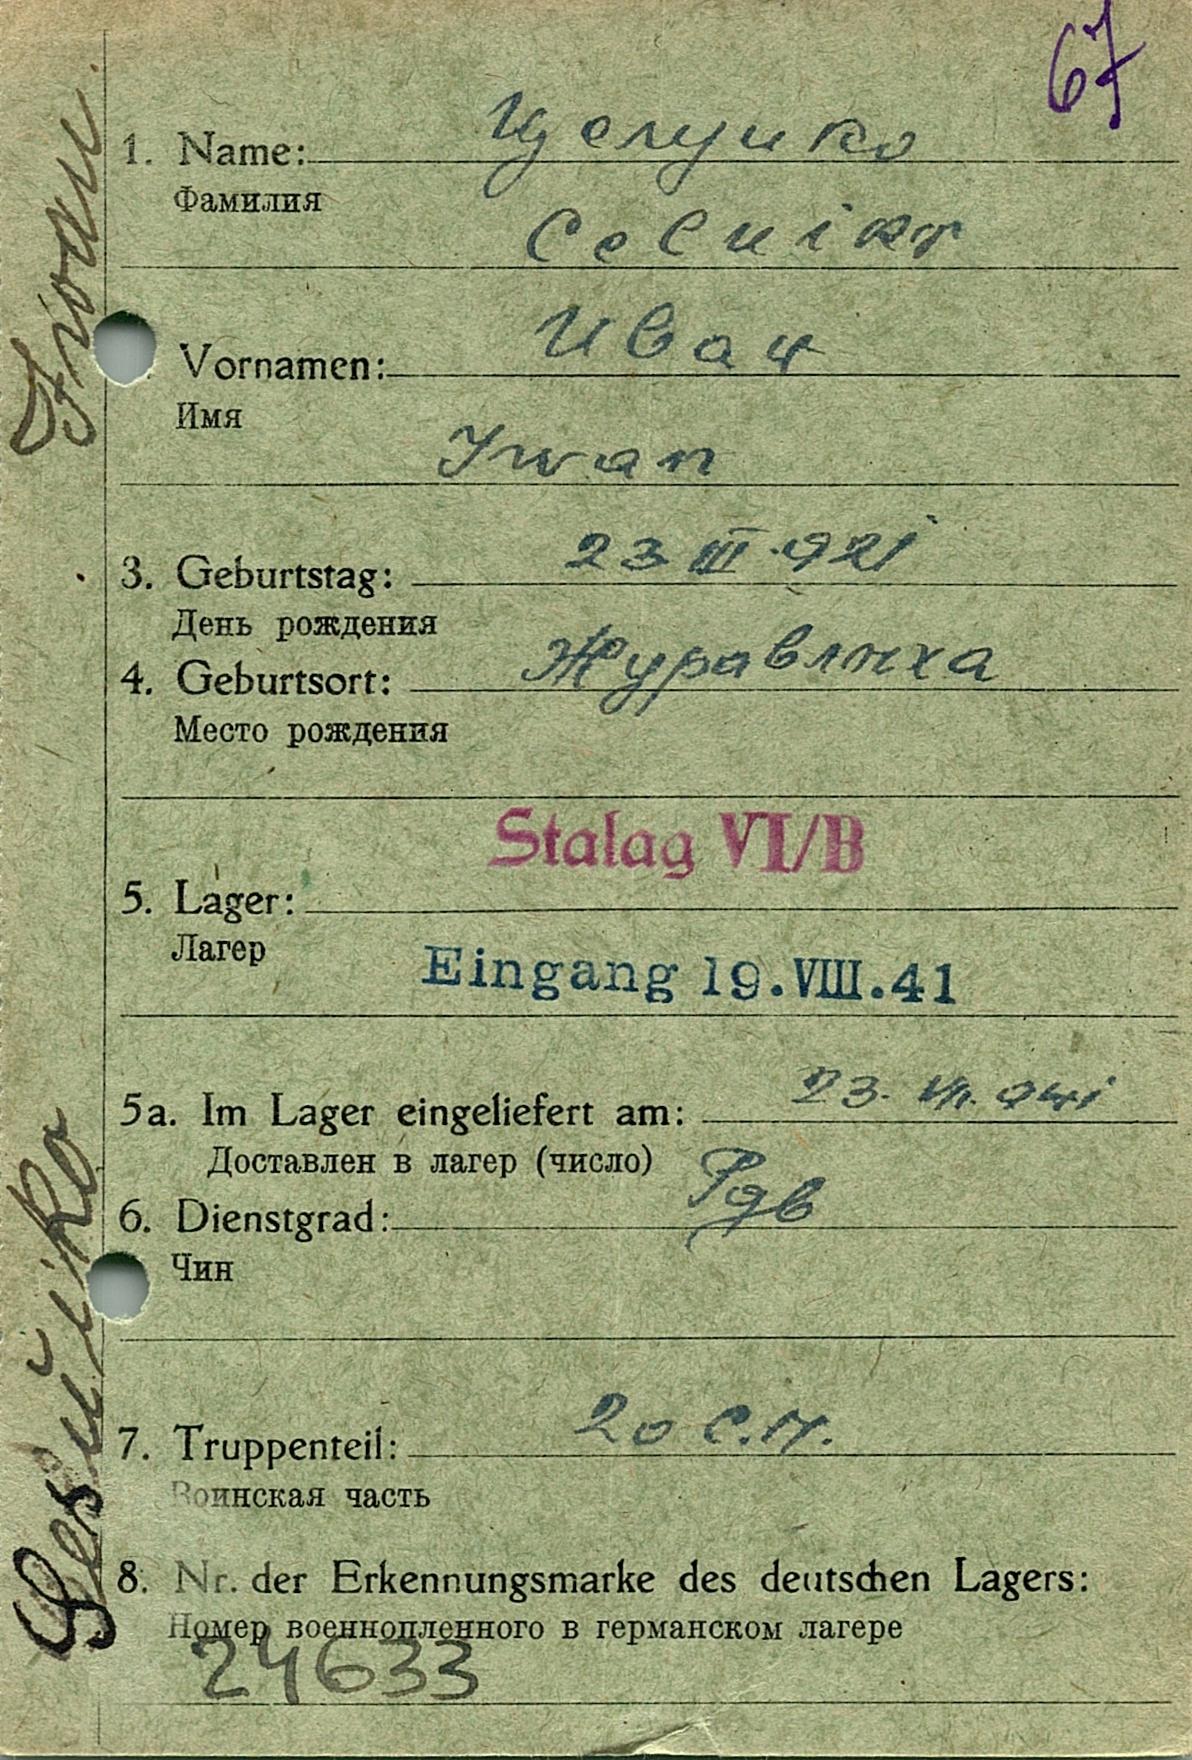 67
1. Name: Целуико
Фамилия
Celuiko
Vornamen: Иван
Имя
Iwan
3. Geburtstag: 23 III 921
День рождения
4. Geburtsort: Журавлиха
Место рождения
Stalag VI/B
5. Lager:
Лагер
Eingang 19.VIII.41
5a. Im Lager eingeliefert am: 23. VII. 941
Доставлен в лагер (число)
6. Dienstgrad: Рдв
Чин
7. Truppenteil: 20 С.П.
Воинская часть
8. Nr. der Erkennungsmarke des deutschen Lagers:
Номер военнопленного в германском лагере
24633
Iwan.